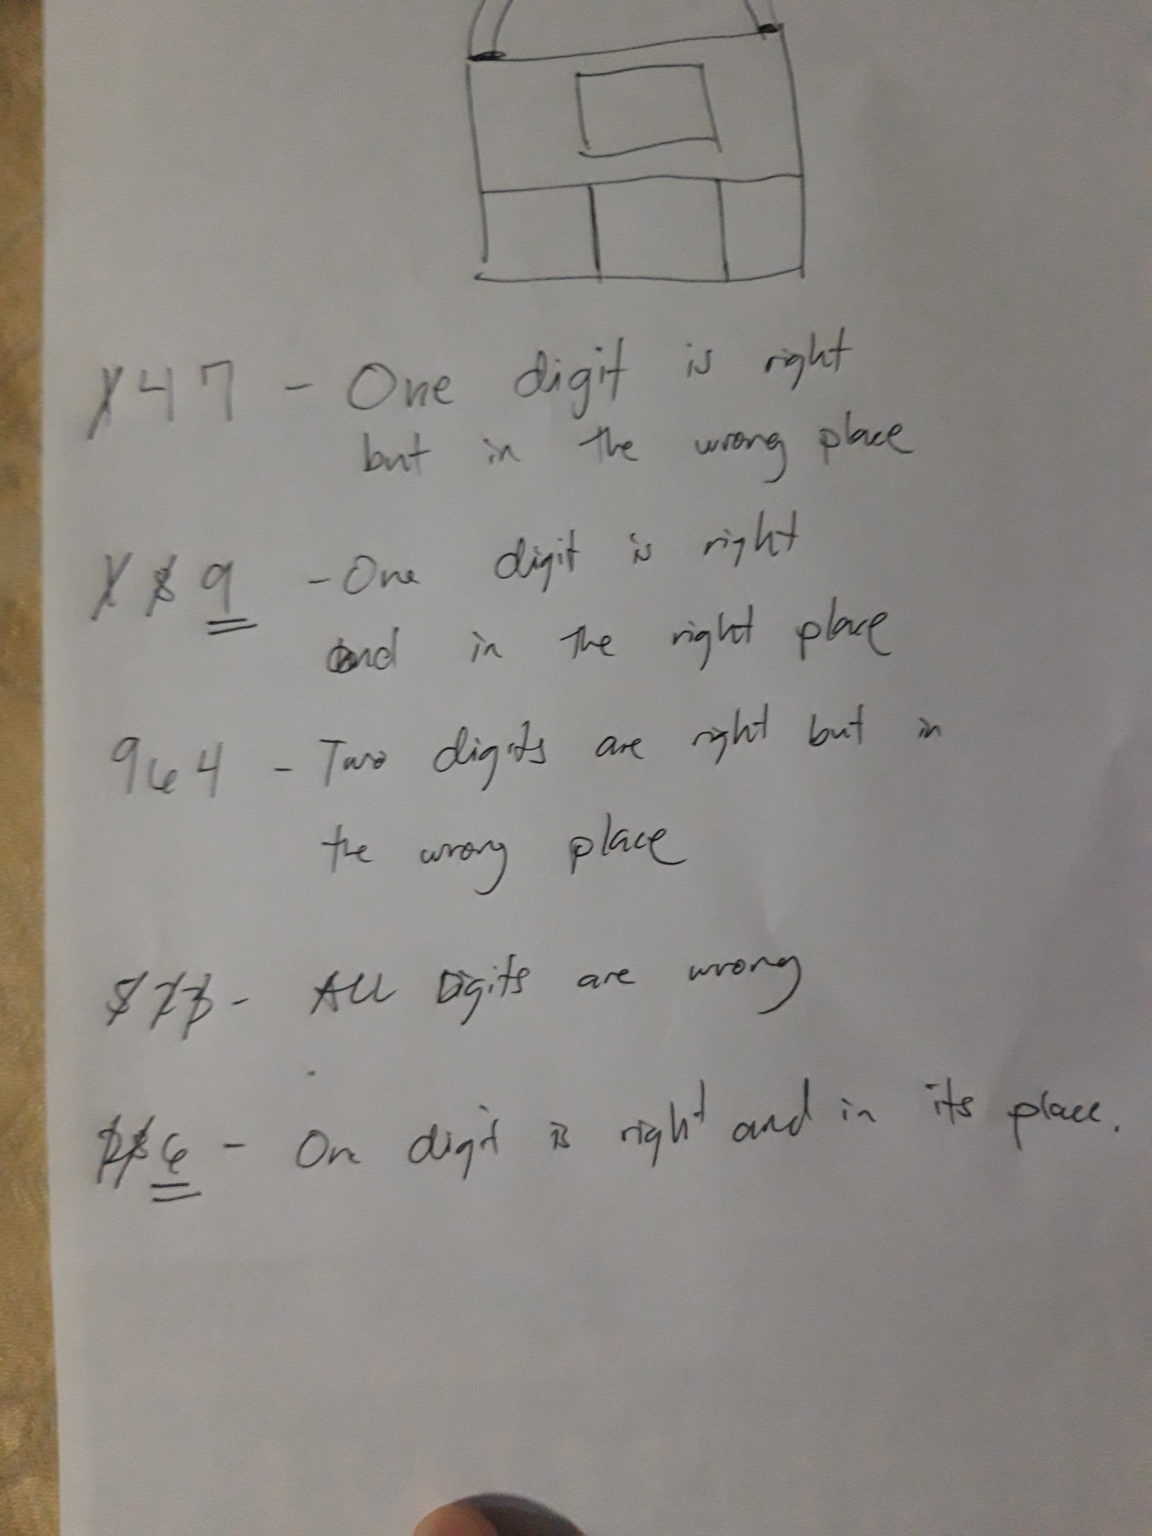 147 - One digit is right
but in the wrong place
189 - One digit is right
and in the right place
964 - Two digits are right but in
the wrong place
523 - All Digits are wrong
286 - One digit is right and in its place.